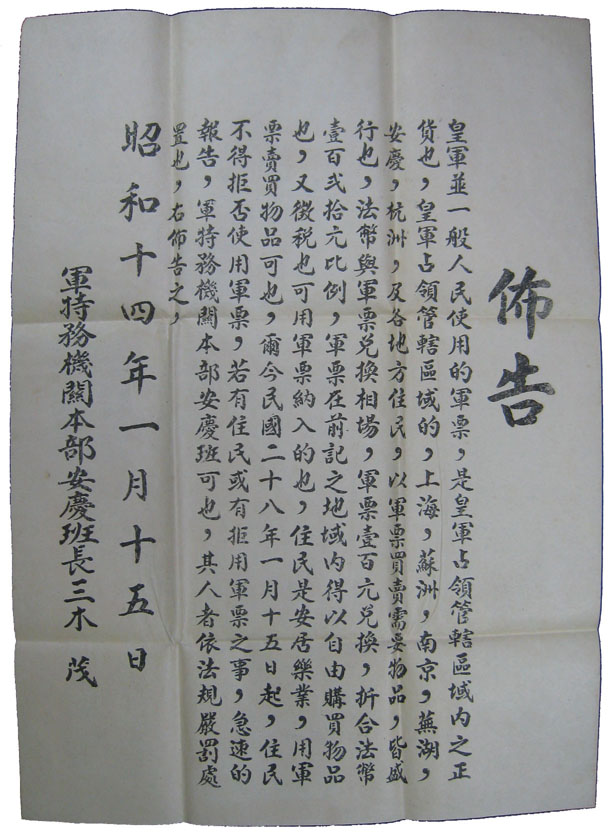 佈告
皇軍並一般人民使用的軍票，是皇軍占領管轄區域内之正
貨也，皇軍占領管轄區域的，上海，蘇洲，南京，蕪湖，
安慶，杭洲，及各地方住民，以軍票買賣需要物品，皆盛
行也，法幣與軍票兑換相場，軍票壹百元兑換，折合法幣
壹百弐拾元比例，軍票在前記之地域内得以自由購買物品
也，又徵税也可用軍票納入的也，住民是安居樂業，用軍
票賣買物品可也，爾今民國二十八年一月十五日起，住民
不得拒否使用軍票，若有住民或有拒用軍票之事，急速的
報告，軍特務機關本部安慶班可也，其人者依法規嚴罰處
置也，右佈告之，
昭和十四年一月十五日
軍特務機關本部安慶班長三木 茂